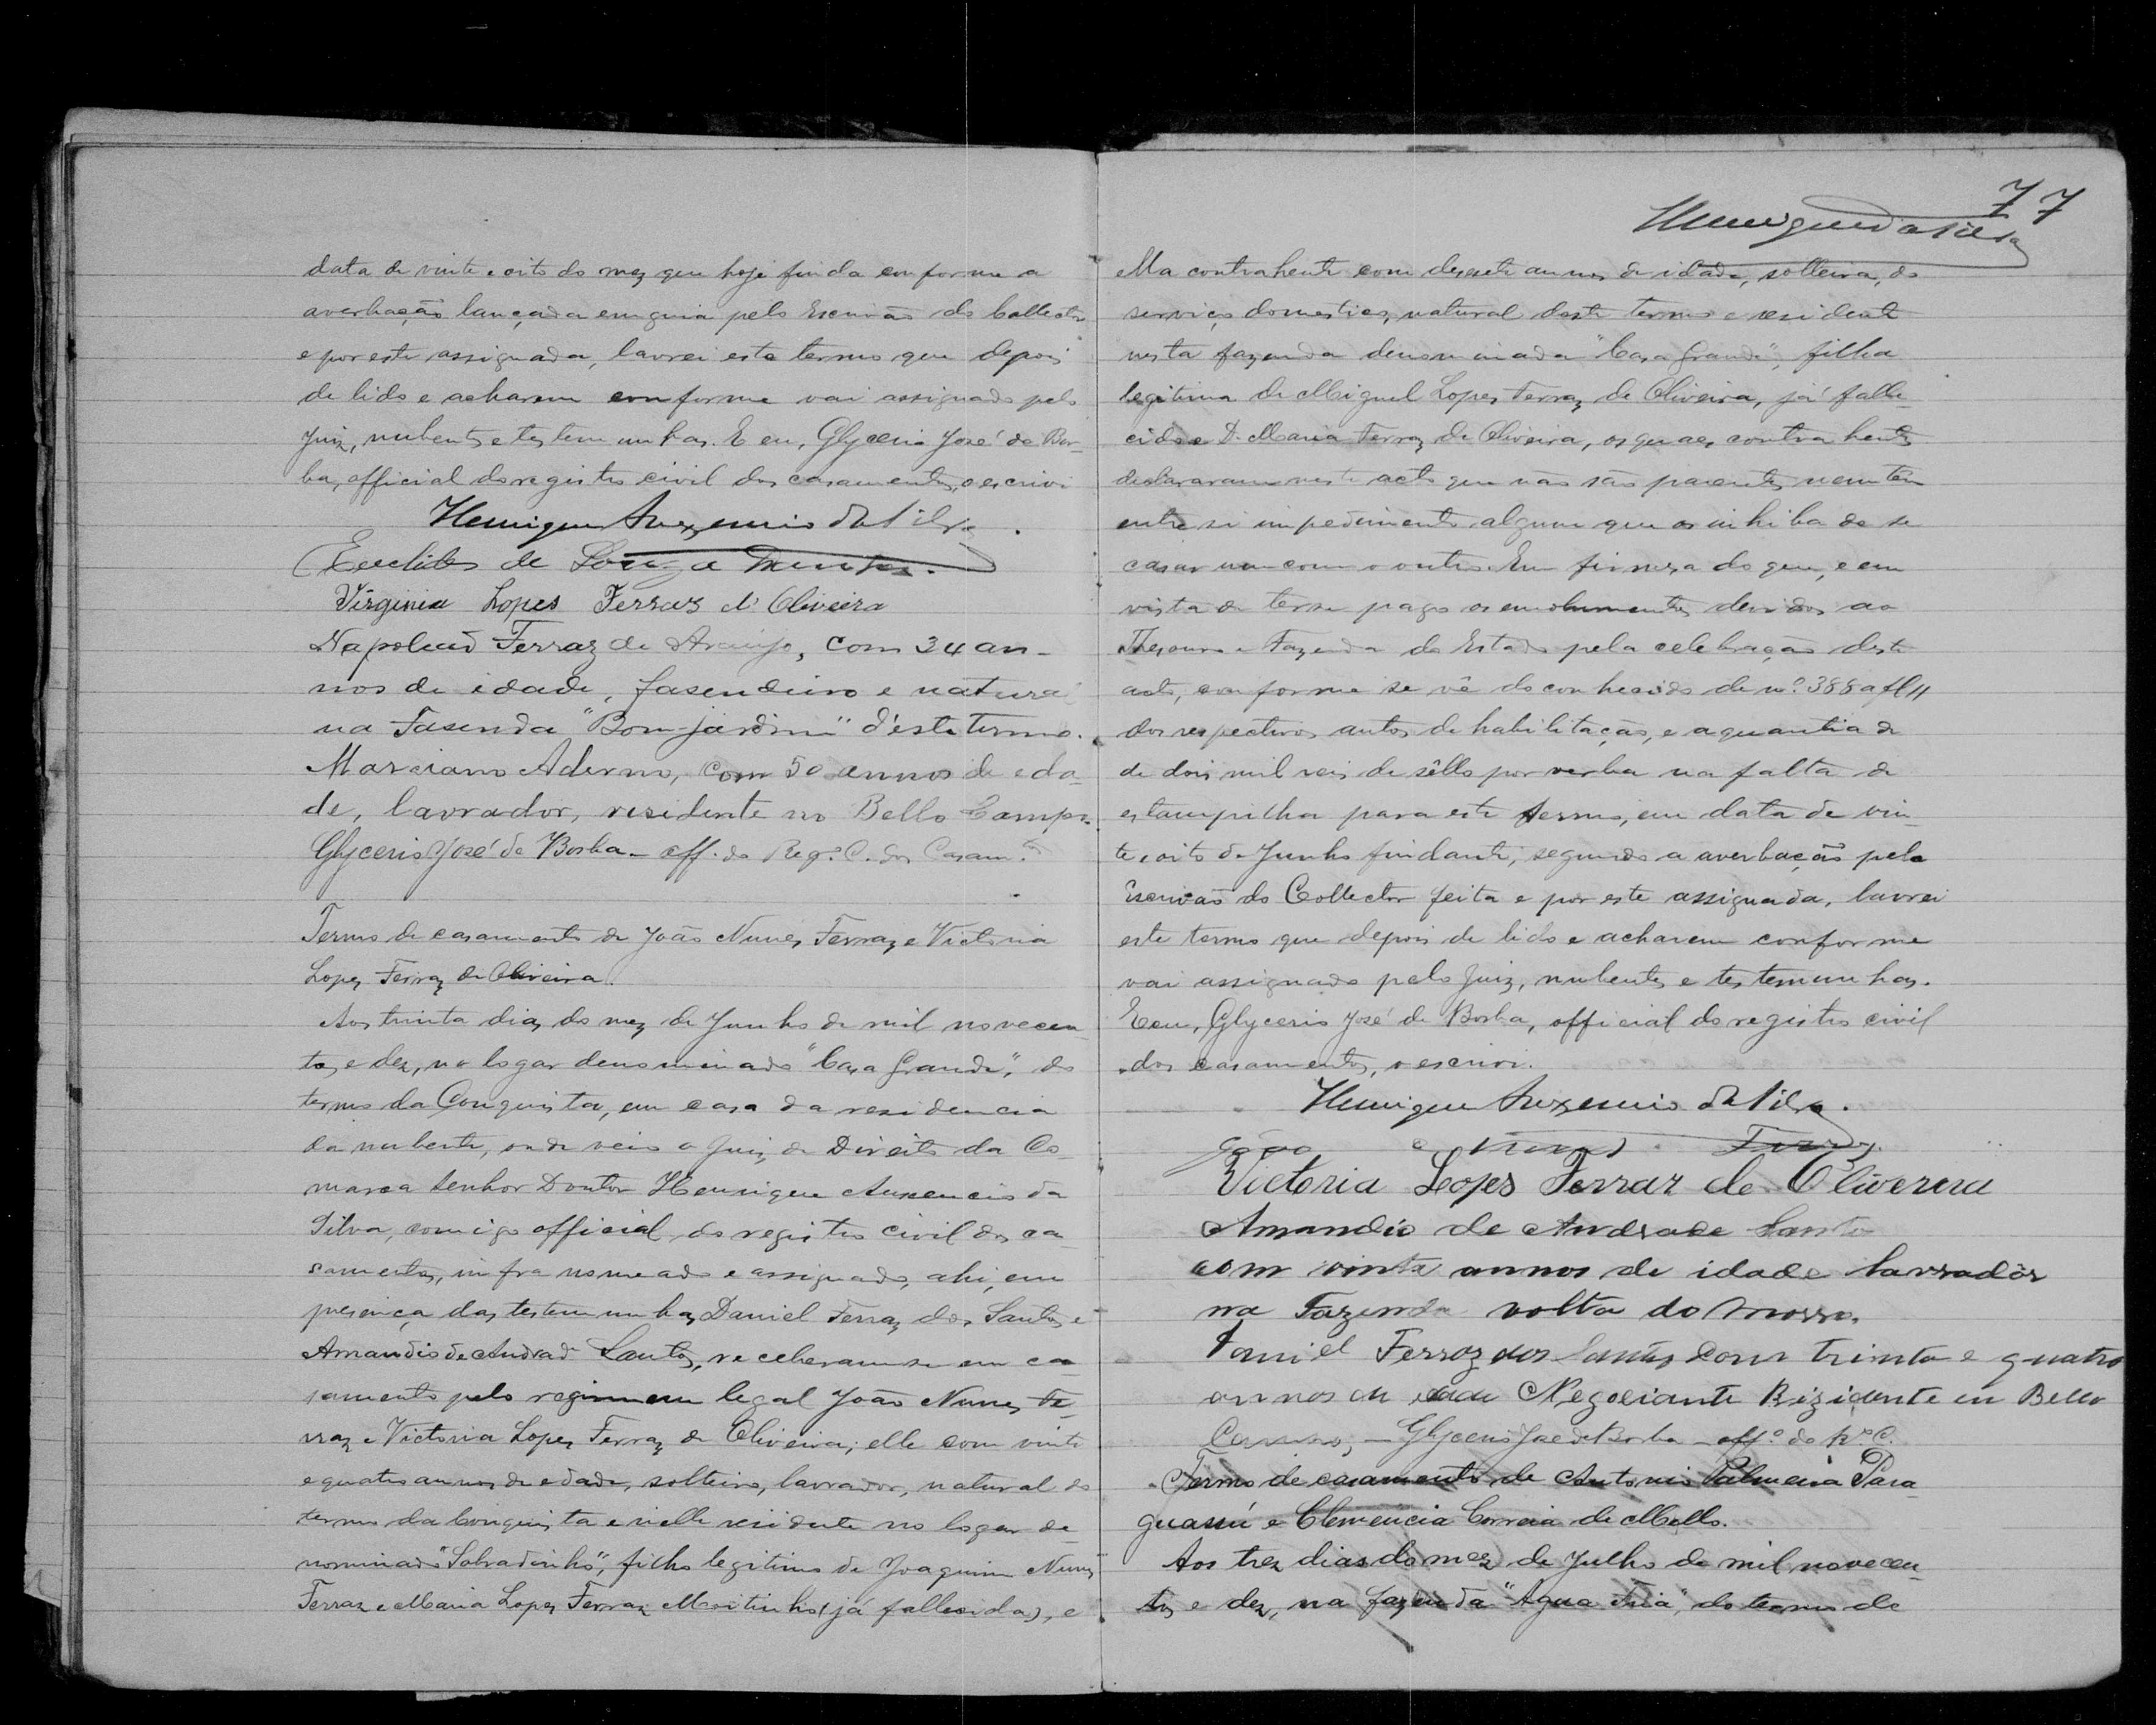 data de vinte e oito do mez que hoje finda conforme a
averbação lançada em guia pelo Escrivão do Collector
e por este assignada, lavrei este termo que depois
de lido e acharem conforme vai assignado pelo
Juiz, nubentes e testemunhas. E eu, Glycerio José de Bor-
ba, official do registro civil dos casamentos, o escrivi
Henrique Auxencio da Silva.
Euclides de Souza
Virginia Lopes Ferraz d'Oliveira
Napoleaõ Ferraz de Araujo, com 34 an-
nos de idade, fasendeiro e natural
na Fasenda "Bom-jardim" d'este termo.
Marciano Aderno, com 50 annos de eda-
de, lavrador, residente no Bello Campo.
Glycerio José de Borba - off. do Reg.º C. dos Casam.tos
Termo de casamento de João Nunes Ferraz e Victoria
Lopes Ferraz de Oliveira.
Aos trinta dias do mez de Junho de mil novecen-
tos e dez, no logar denominado "Casa Grande", do
termo da Conquista, em casa da residencia
da nubente, onde veio o Juiz de Direito da Co-
marca Senhor Doutor Henrique Auxencio da
Silva, comigo official do registro civil dos ca-
samentos, infra nomeado e assignado, ahi, em
presença das testemunhas Daniel Ferraz dos Santos e
Amandio de Andrade Santos, receberam-se em ca-
samento pelo regimem legal João Nunes Fe-
rraz e Victoria Lopes Ferraz de Oliveira; elle com vinte
e quatro annos de edade, solteiro, lavrador, natural do
termo da Conquista e nelle residente no logar de-
nominado "Sobradinho", filho legitimo de Joaquim Nunes
Ferraz e Maria Lopes Ferraz Moitinho (já fallecida), e
77
Henrique da Silva
Ella contrahente com desesete annos de idade, solteira, do
serviço domestico, natural deste termo e residente
nesta fazenda denominada "Casa Grande", filha
legitima de Miguel Lopes Ferraz de Oliveira, já falle-
cido e D. Maria Ferraz de Oliveira, os quaes contrahentes
declararam neste acto que não são parentes nem têm
entre si impedimento algum que os inhiba de se
casar um com o outro. Em firmeza do que, e em
vista de terse pago os emolumentos devidos ao
Thesouro e Fazenda do Estado pela celebração deste
acto, conforme se vê do conhecido de n.º 388 a fl 11
dos respectivos autos de habilitação, e a quantia de
de dois mil reis de sêllo por verba na falta de
estampilha para este termo, em data de vin-
te e oito de Junho findante, segundo a averbação pelo
Escrivaõ do Collector feita e por este assignada, lavrei
este termo que depois de lido e acharem conforme
vai assignado pelo Juiz, nubentes e testemunhas.
E eu, Glycerio José de Borba, official do registro civil
dos casamentos, o escrivi.
Henrique Auxencio da Silva.
João Nunes Ferraz
Victoria Lopes Ferraz de Oliveira
Amandio de Andrade Santos
com vinte annos de idade lavradôr
na Fazenda volta do morro.
Daniel Ferraz dos Santos com trinta e quatro
annos de edade Negociante Rizidente em Bello
Campo, - Glycerio José de Borba - off.º do R.º C.
Termo de casamento de Antonio Palmeira Para-
guassú e Clemencia Correia de Mello.
Aos trez dias do mez de Julho de mil novecen-
tos e dez, na fazenda "Agua Fria", do termo de